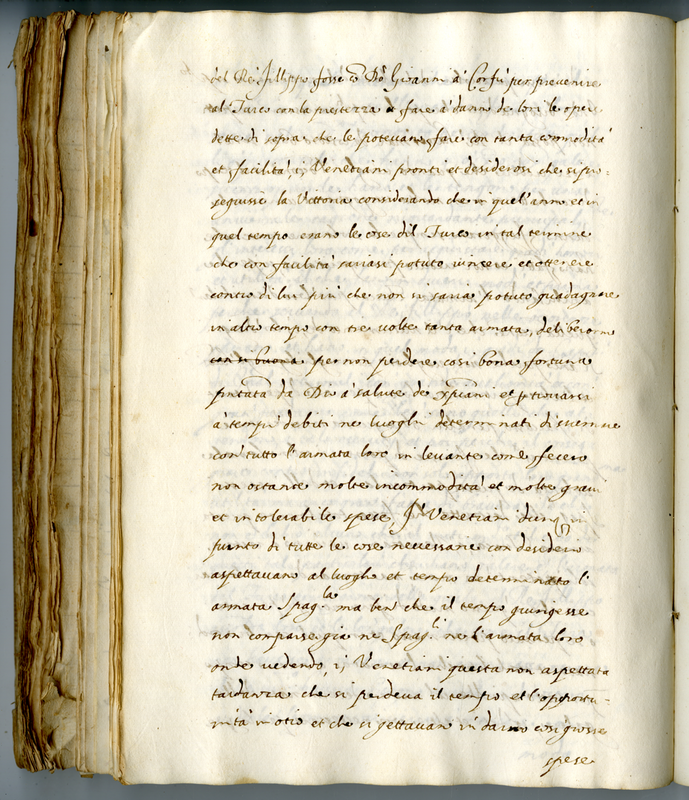 del Re Filippo fosse co Do Giovanni à Corfù per prevenire
al Turco con la prestezza a fare à danno de loro le opere
dette di sopra, che le potevano fare con tanta commodità
et facilità, ij Venetiani pronti et desiderosi che si pro-
seguisse la Vittoria considerando che in quel'anno et in
quel tempo erano le cose dil Turco in tal termine
che con facilità sariasi potuto vincere et ottenere
contro di lui più che non si saria potuto guadagnare
in altro tempo con tre volte tanta armata, deliberorno
con si buona per non perdere cosi bona fortuna
da Dio à salute de xpiani et
à tempi debiti ne luoghi determinati di
con tutto l'armata loro in levante come fecero
non ostante molte incommodità et molte gravi
et intolerabile spese, Venetiani dunq in
punto di tutte le cose necessarie con desiderio
aspettavano al luogho et tempo determinato l'
armata Spag.la ma ben che il tempo giungesse
non comparse gia ne Spag.li ne l'armata loro
onde vedendo, ij Venetiani questa non aspettata
tardanza che si perdeva il tempo et l'opportu-
nità in otio et che si gettavan in darno cosi grosse
spese